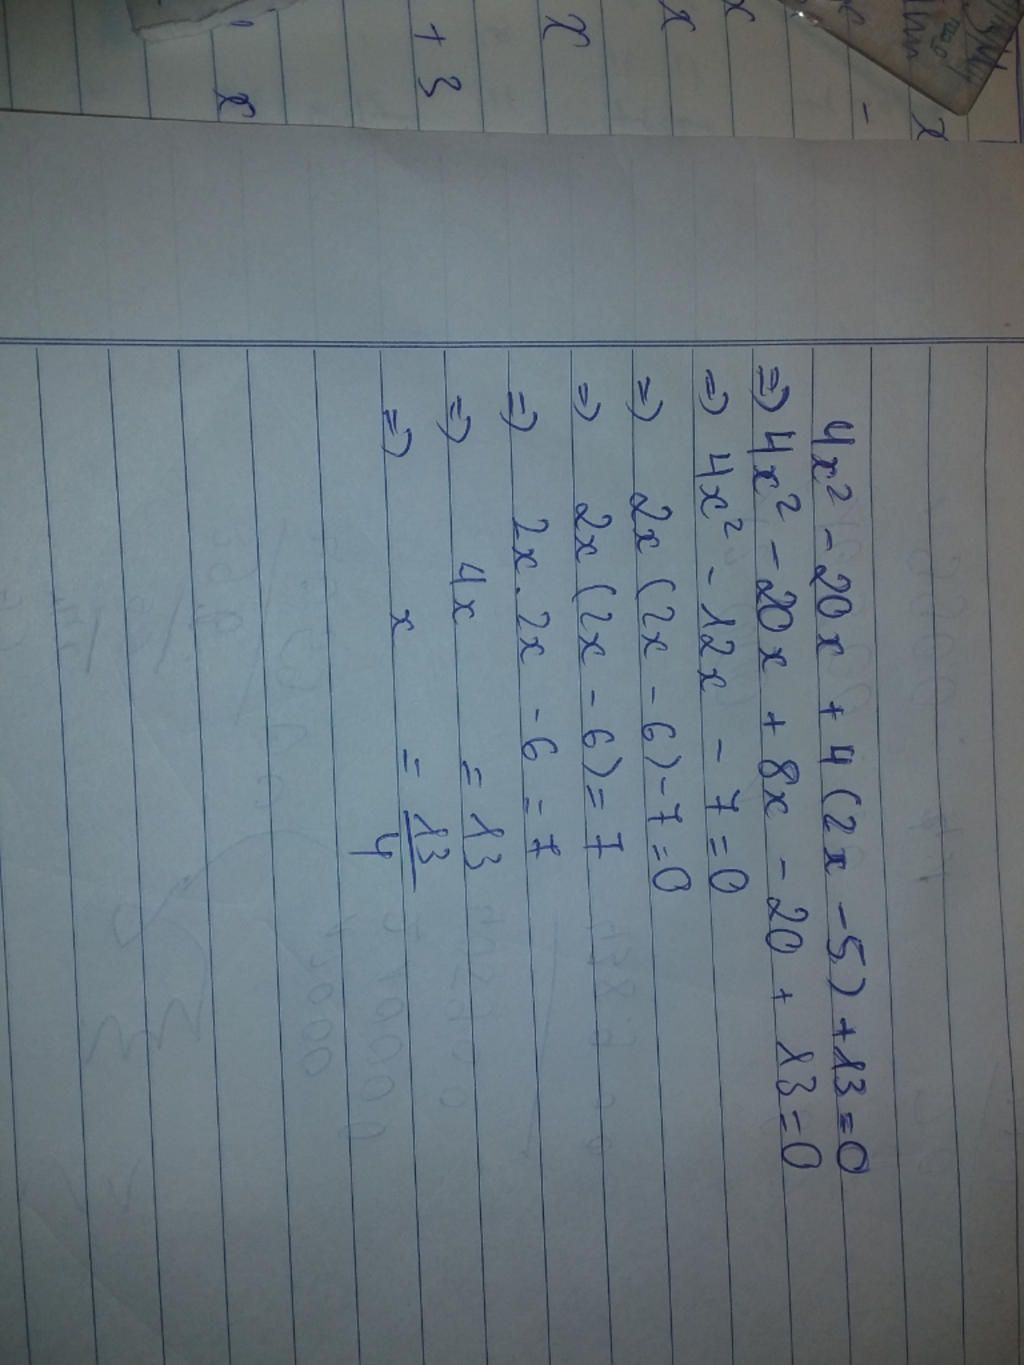 4x² - 20x + 4 (2x - 5) + 13 = 0
=> 4x² - 20x + 8x - 20 + 13 = 0
=> 4x² - 12x - 7 = 0
=> 2x (2x - 6) - 7 = 0
=> 2x (2x - 6) = 7
=> 2x . 2x - 6 = 7
=> 4x = 13
=> x = 13/4
x
x
x
+ 3
x
- x